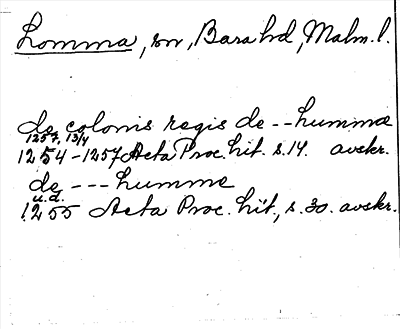 Lomma, sn, Bara hd, Malm.l.
de colonis regis de -- hummæ
1257, 13/4
1254-1257 Acta Proc. hit. s.14. avskr.
de --- humme
u.d.
1255 Acta Proc. hit., s.30. avskr.